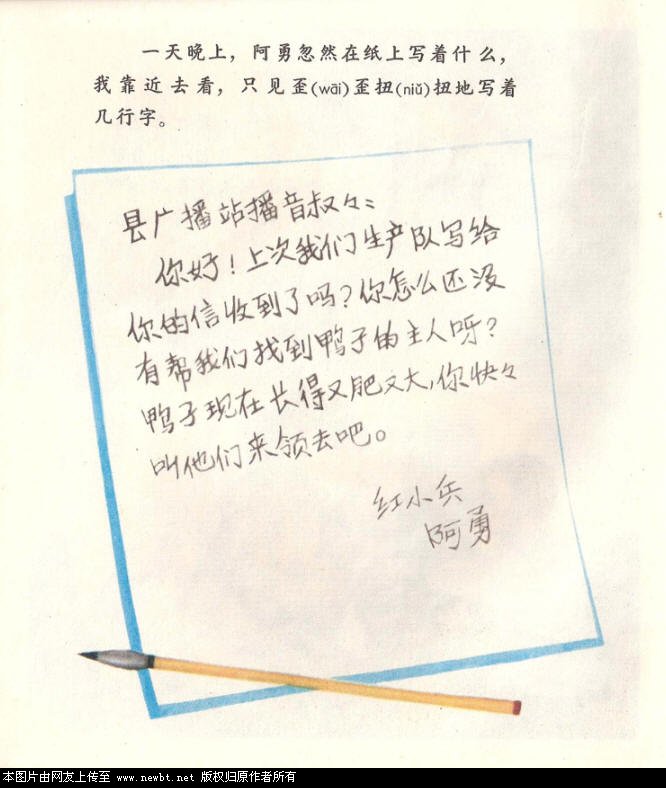 一天晚上，阿勇忽然在纸上写着什么，
我靠近去看，只见歪(wāi)歪扭(niǔ)扭地写着
几行字。
县广播站播音叔々：
你好！上次我们生产队写给
你的信收到了吗？你怎么还没
有帮我们找到鸭子的主人呀？
鸭子现在长得又肥又大，你快々
叫他们来领去吧。
红小兵
阿勇
本图片由网友上传至 www.newbt.net 版权归原作者所有